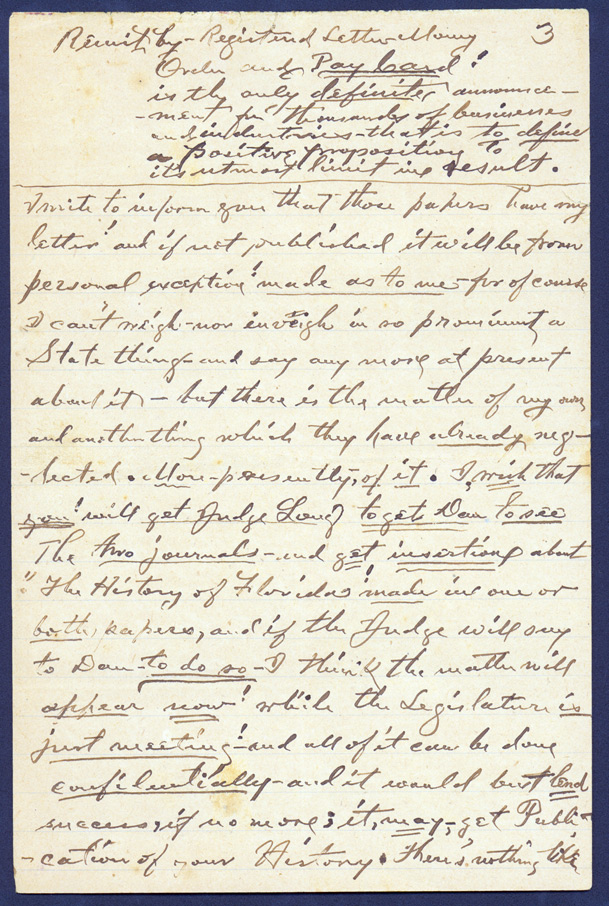 3
Remit by - Registered Letter Money
Order and Pay Card!
is the only definite announce-
-ment for thousands of businesses
and industries - that is to define
a positive proposition to
its utmost limit in result.
I write to inform you that those papers have my
letter! and if not published it will be from
personal exception! made as to me - for of course
I can't weigh - nor inveigh in so prominent a
State thing - and say any more at present
about it - but there is the matter of my own
and another thing which they have already neg-
-lected. More presently, of it. I wish that
you! will get Judge Long to get Dan to see
The two journals - and get insertions about
"The History of Florida" made in one or
both papers, and if the Judge will say
to Dan to do so - I think the matter will
appear now! while the Legislature is
just meeting! - and all of it can be done
confidentially - and it would but lend
success, if no more; it, may, get Publi-
-cation of your History. There's nothing like